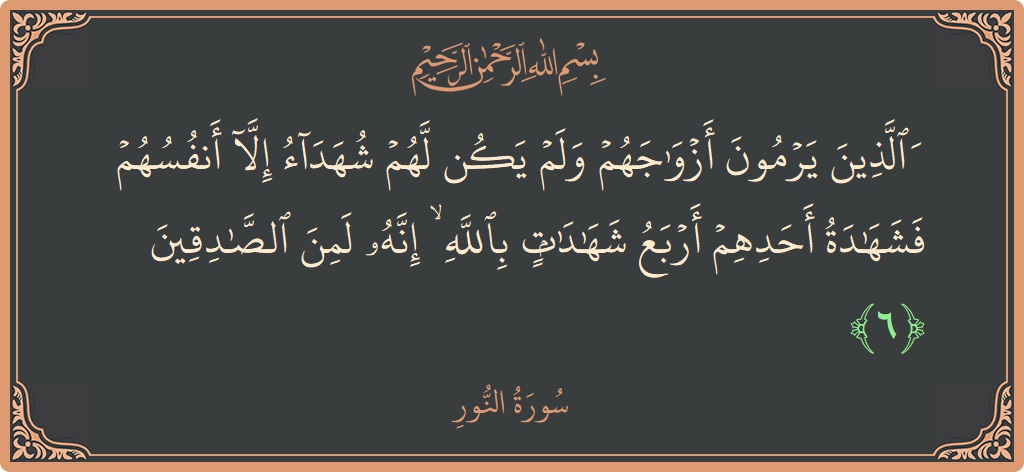 بِسْمِ اللهِ الرَّحْمٰنِ الرَّحِيْمِ
َٱلَّذِينَ يَرۡمُونَ أَزۡوَٰجَهُمۡ وَلَمۡ يَكُن لَّهُمۡ شُهَدَآءُ إِلَّآ أَنفُسُهُمۡ
فَشَهَٰدَةُ أَحَدِهِمۡ أَرۡبَعُ شَهَٰدَٰتِۭ بِٱللَّهِ ۙ إِنَّهُۥ لَمِنَ ٱلصَّٰدِقِينَ
﴿٦﴾
سُورَةُ النُّورِ